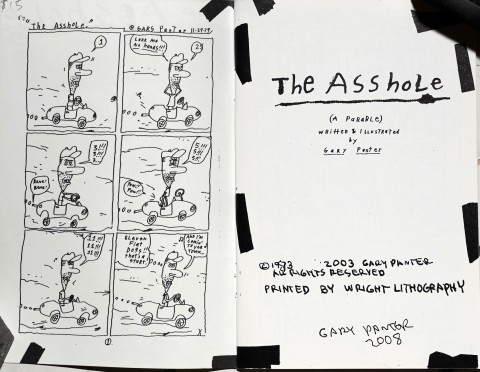 $15
"The Asshole."
© GARY Panter 11-29-79
1
Look Ma
No Hands!!!
2!
3!!!
3!!!
3!!
BANG!
BANG!
5!!!
5!!!
5!!
POW!!
POW!!
11!!!
11!!!
11!!!
Eleven
Flat
Dots!!
That's a
START.
AND I'm
Comin'
TO YOUR
Town...
1
The Asshole
(A PARABLE)
WRITTEN & ILLUSTRATED
by
GARY Panter
© 1993 2003 GARY PANTER
ALL RIGHTS RESERVED
PRINTED BY WRIGHT LITHOGRAPHY
GARY PANTER
2008